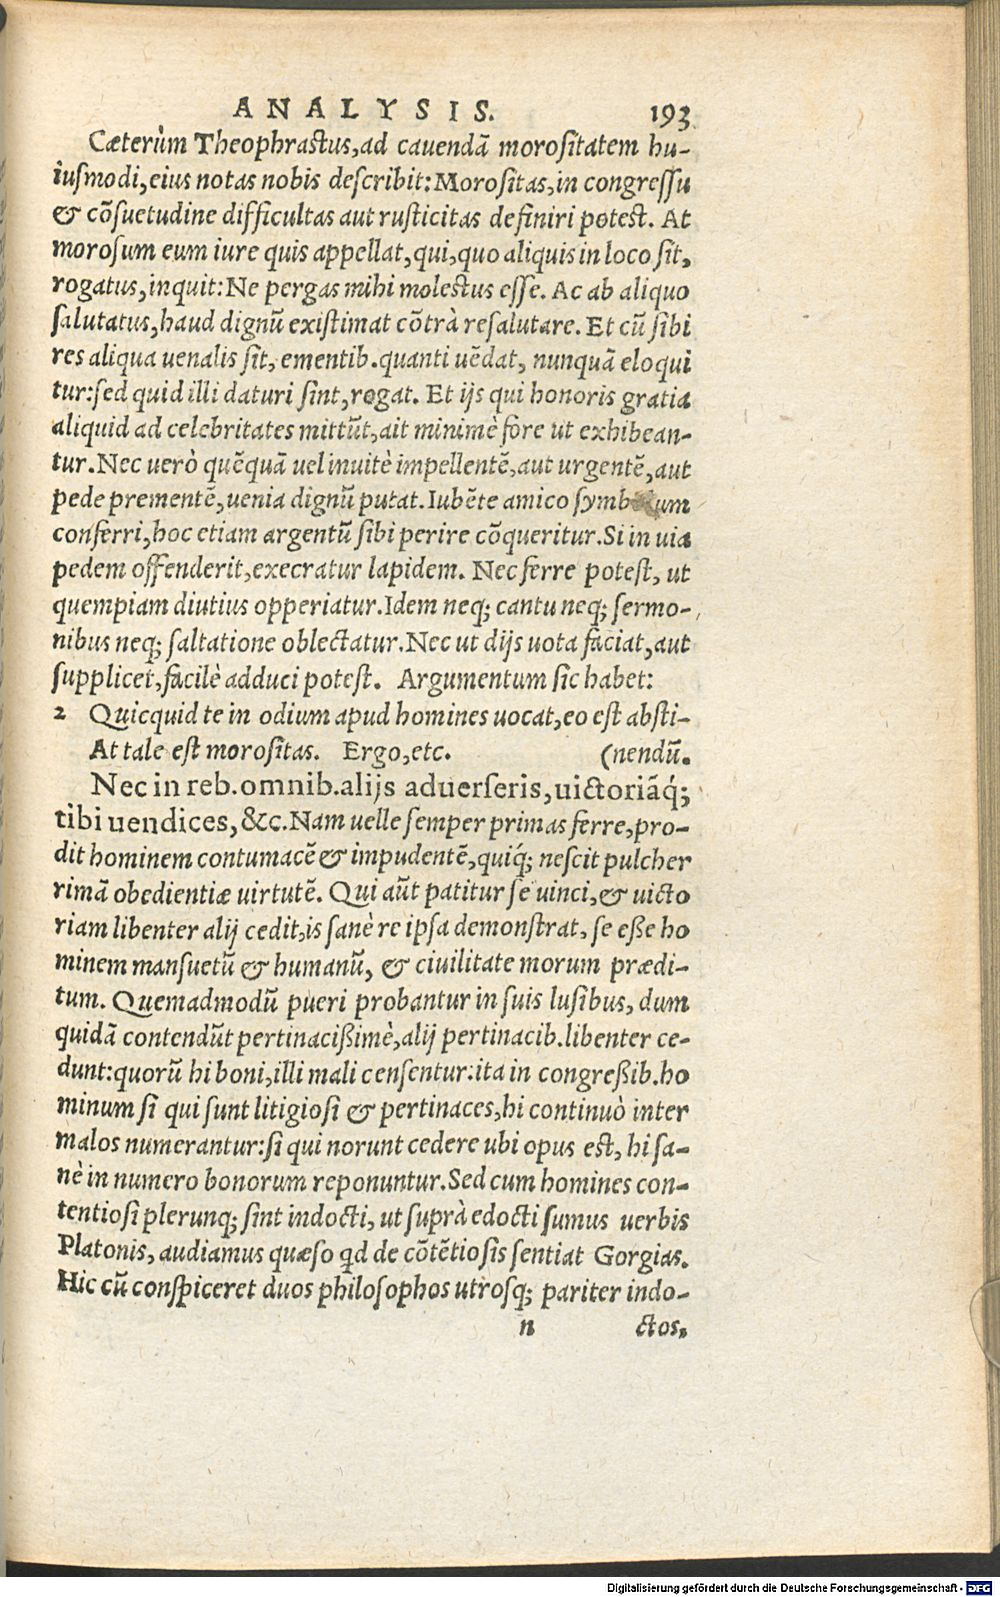 ANALYSIS. 193
Cæterùm Theophrastus, ad cauendã morositatem hu-
iusmodi, eius notas nobis describit: Morositas, in congressu
& cõsuetudine difficultas aut rusticitas definiri potest. At
morosum eum iure quis appellat, qui, quo aliquis in loco sit,
rogatus, inquit: Ne pergas mihi molestus esse. Ac ab aliquo
salutatus, haud dignũ existimat cõtrà resalutare. Et cũ sibi
res aliqua uenalis sit, ementib. quanti uẽdat, nunquã eloqui
tur: sed quid illi daturi sint, rogat. Et ijs qui honoris gratia
aliquid ad celebritates mittũt, ait minimè fore ut exhibean-
tur. Nec uerò quẽquã uel inuitè impellentẽ, aut urgentẽ, aut
pede prementẽ, uenia dignũ putat. Iubẽte amico
conferri, hoc etiam argentũ sibi perire cõqueritur. Si in uia
pedem offenderit, execratur lapidem. Nec ferre potest, ut
quempiam diutius opperiatur. Idem neq; cantu neq; sermo-
nibus neq; saltatione oblectatur. Nec ut dijs uota faciat, aut
supplicet, facilè adduci potest. Argumentum sic habet:
2 Quicquid te in odium apud homines uocat, eo est absti-
At tale est morositas. Ergo, etc. (nendũ.
Nec in reb. omnib. alijs aduerseris, uictoriãq́;
tibi uendices, &c. Nam uelle semper primas ferre, pro-
dit hominem contumacẽ & impudentẽ, quiq́; nescit pulcher
rimã obedientiæ uirtutẽ. Qui aũt patitur se uinci, & uicto
riam libenter alij cedit, is sanè re ipsa demonstrat, se eße ho
minem mansuetũ & humanũ, & ciuilitate morum prædi-
tum. Quemadmodũ pueri probantur in suis lusibus, dum
quidã contendũt pertinacißimè, alij pertinacib. libenter ce-
dunt: quorũ hi boni, illi mali censentur: ita in congreßib. ho
minum si qui sunt litigiosi & pertinaces, hi continuò inter
malos numerantur: si qui norunt cedere ubi opus est, hi sa-
nè in numero bonorum reponuntur. Sed cum homines con-
tentiosi plerunq; sint indocti, ut suprà edocti sumus uerbis
Platonis, audiamus quæso qd de cõtẽtiosis sentiat Gorgias.
Hic cũ conspiceret duos philosophos utrosq; pariter indo-
n ctos,
Digitalisierung gefördert durch die Deutsche Forschungsgemeinschaft - DFG